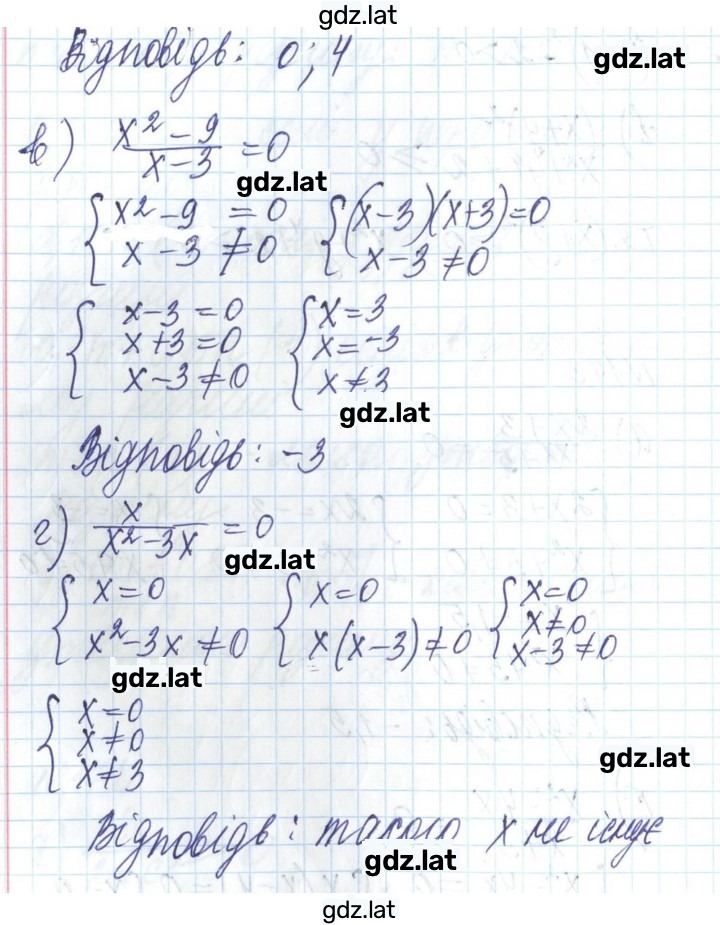 gdz.lat
Відповідь: 0; 4
gdz.lat
в) x² - 9 / x - 3 = 0
gdz.lat
{ x² - 9 = 0 { (x - 3)(x + 3) = 0
x - 3 ≠ 0 x - 3 ≠ 0
{ x - 3 = 0 { x = 3
x + 3 = 0 x = -3
x - 3 ≠ 0 x ≠ 3
gdz.lat
Відповідь: -3
г) x / x² - 3x = 0
gdz.lat
{ x = 0 { x = 0 { x = 0
x² - 3x ≠ 0 x(x - 3) ≠ 0 x ≠ 0
x - 3 ≠ 0
gdz.lat
{ x = 0
x ≠ 0
x ≠ 3
gdz.lat
Відповідь: такого x не існує
gdz.lat
gdz.lat